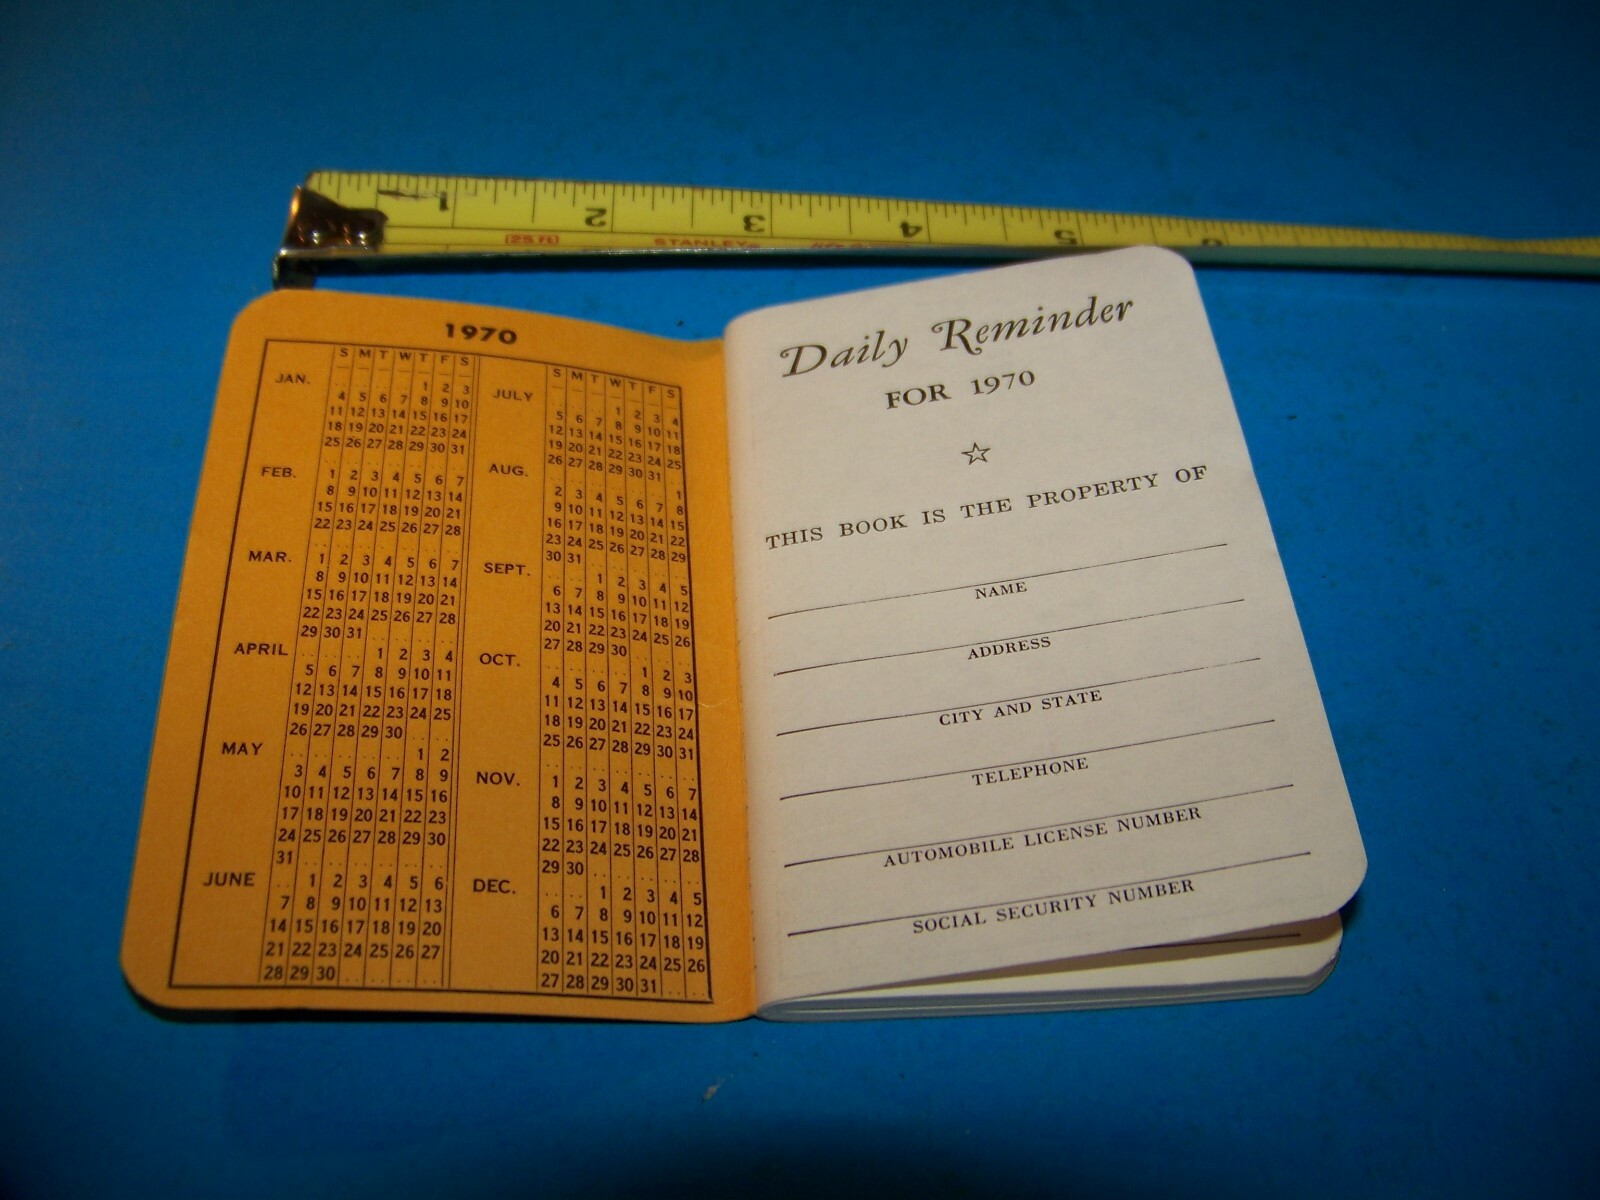 1 2 3 4 5 6
(25 ft) STANLEY®
1970
S M T W T F S
JAN. .. .. .. .. 1 2 3
4 5 6 7 8 9 10
11 12 13 14 15 16 17
18 19 20 21 22 23 24
25 26 27 28 29 30 31
FEB. 1 2 3 4 5 6 7
8 9 10 11 12 13 14
15 16 17 18 19 20 21
22 23 24 25 26 27 28
MAR. 1 2 3 4 5 6 7
8 9 10 11 12 13 14
15 16 17 18 19 20 21
22 23 24 25 26 27 28
29 30 31 .. .. .. ..
APRIL .. .. .. 1 2 3 4
5 6 7 8 9 10 11
12 13 14 15 16 17 18
19 20 21 22 23 24 25
26 27 28 29 30 .. ..
MAY .. .. .. .. .. 1 2
3 4 5 6 7 8 9
10 11 12 13 14 15 16
17 18 19 20 21 22 23
24 25 26 27 28 29 30
31 .. .. .. .. .. ..
JUNE .. 1 2 3 4 5 6
7 8 9 10 11 12 13
14 15 16 17 18 19 20
21 22 23 24 25 26 27
28 29 30 .. .. .. ..
S M T W T F S
JULY .. .. .. 1 2 3 4
5 6 7 8 9 10 11
12 13 14 15 16 17 18
19 20 21 22 23 24 25
26 27 28 29 30 31 ..
AUG. .. .. .. .. .. .. 1
2 3 4 5 6 7 8
9 10 11 12 13 14 15
16 17 18 19 20 21 22
23 24 25 26 27 28 29
30 31 .. .. .. .. ..
SEPT. .. .. 1 2 3 4 5
6 7 8 9 10 11 12
13 14 15 16 17 18 19
20 21 22 23 24 25 26
27 28 29 30 .. .. ..
OCT. .. .. .. .. 1 2 3
4 5 6 7 8 9 10
11 12 13 14 15 16 17
18 19 20 21 22 23 24
25 26 27 28 29 30 31
NOV. 1 2 3 4 5 6 7
8 9 10 11 12 13 14
15 16 17 18 19 20 21
22 23 24 25 26 27 28
29 30 .. .. .. .. ..
DEC. .. .. 1 2 3 4 5
6 7 8 9 10 11 12
13 14 15 16 17 18 19
20 21 22 23 24 25 26
27 28 29 30 31 .. ..
Daily Reminder
FOR 1970
☆
THIS BOOK IS THE PROPERTY OF
NAME
ADDRESS
CITY AND STATE
TELEPHONE
AUTOMOBILE LICENSE NUMBER
SOCIAL SECURITY NUMBER